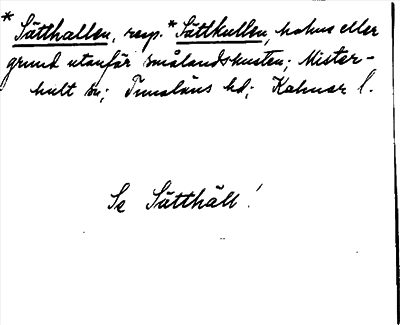 *Sätthallen, resp. *Sättkullen, holme eller
grund utanför smålandskusten; Mister-
hult sn; Tunaläns hd; Kalmar l.
Se Sätthäll!